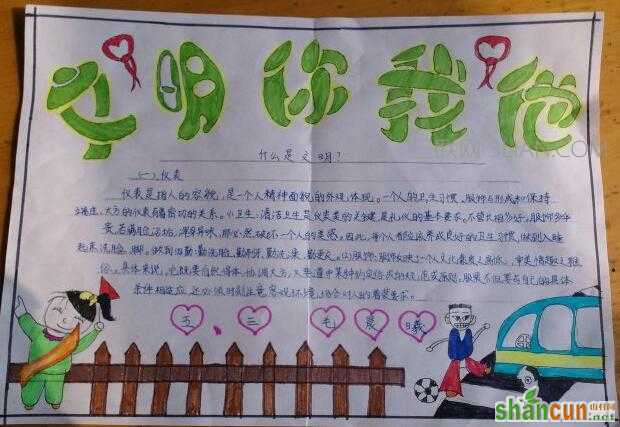 文明你我他
什么是文明?
(一)、仪表
仪表是指人的容貌,是一个人精神面貌的外观体现。一个人的卫生习惯,服饰与形成和保持
端庄、大方的仪表有着密切的关系。小卫生:清洁卫生是仪容美的关键,是礼仪的基本要求。不管长相多好,服饰多华
贵,若满脸污垢,浑身异味,那必然破坏一个人的美感。因此,每个人都应该养成良好的卫生习惯,做到入睡
起床洗脸、脚,
勤洗脸、勤
服饰反映了一个人文化素质之高低,审美情趣之雅
俗。具体来说,它既要自然得体,协调大方,又
自己的具体
条件相适应,还必须时刻注意客观环境、场合对人的着装要求。
五、三 毛晨曦
shancun
.net